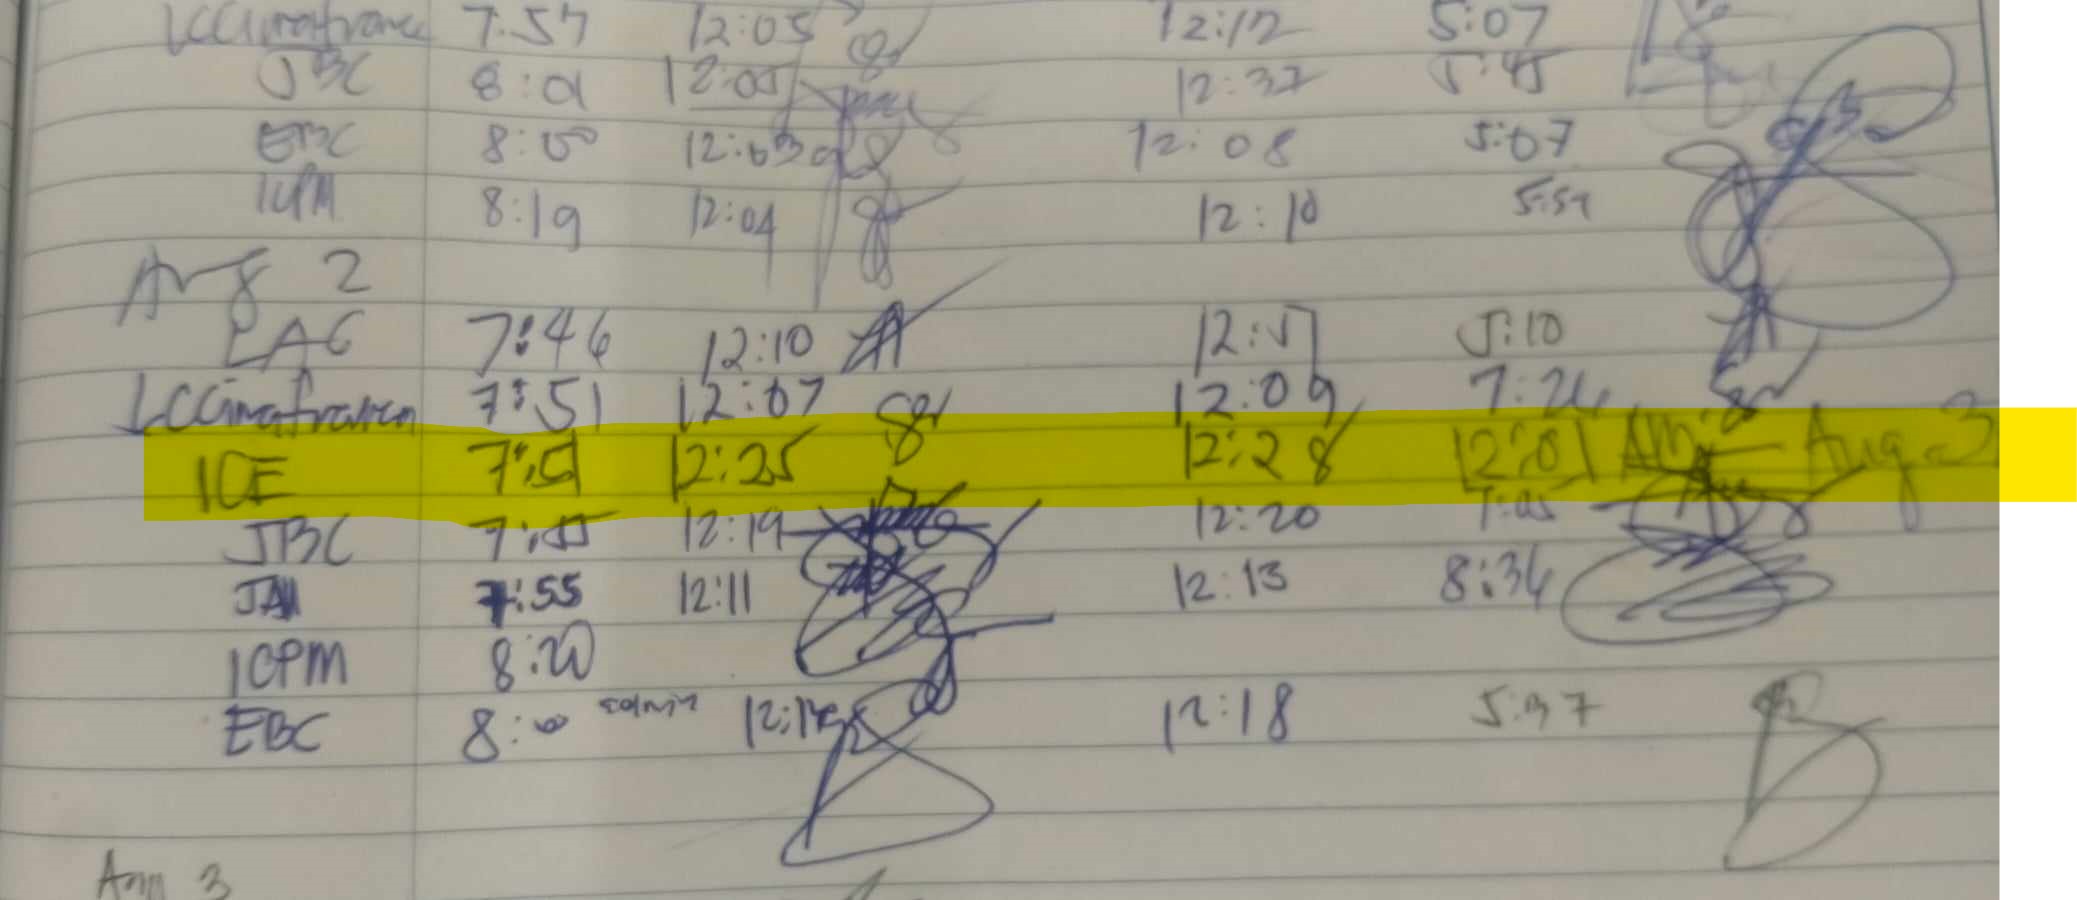 7:57 12:05 12:12 5:07
JBC 8:01 12:05 12:37 5:45
EBC 8:00 12:03 12:08 5:07
ICPM 8:19 12:04 12:10 5:59
Aug 2
LAC 7:46 12:10 12:57 5:10
7:51 12:07 12:09 7:26
ICE 7:51 12:25 12:28 12:01 AM - Aug. 3
JBC 7:55 12:19 12:20 7:05
JAM 7:55 12:11 12:13 8:36
ICPM 8:20
EBC 8:00 12:18 5:37
Aug 3